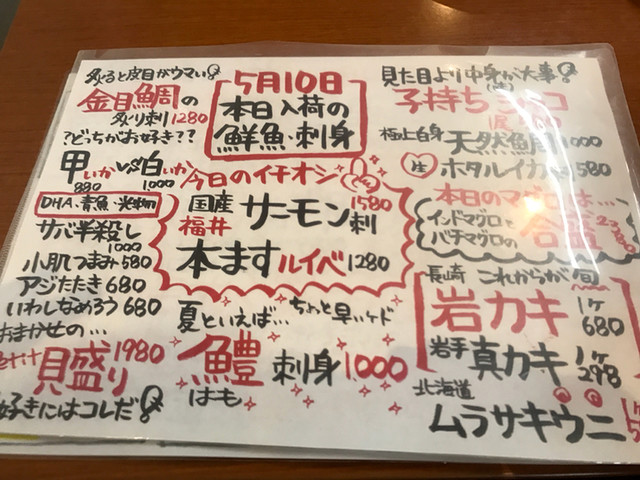 炙ると皮目がウマい
金目鯛の
炙り刺1280
?どっちがお好き??
甲いかVS白いか
880 1000
DHA・青魚・光物
サバ半殺し
1000
小肌つまみ580
アジたたき680
いわしなめろう680
おまかせの…
貝盛り1980
好きにはコレだ
5月10日
本日入荷の
鮮魚・刺身
今日のイチオシ
国産 サーモン刺 1580
福井
本ますルイベ1280
夏といえば… ちょっと早いケド
鱧刺身1000
はも
見た目より中身が大事
子持ち
極上白身 天然 1000
生 ホタルイカ 580
本日のマグロは…
インドマグロと
バチマグロの
合盛
長崎 これからが旬
岩カキ 1ヶ680
岩手 真カキ 1ヶ298
北海道
ムラサキウニ